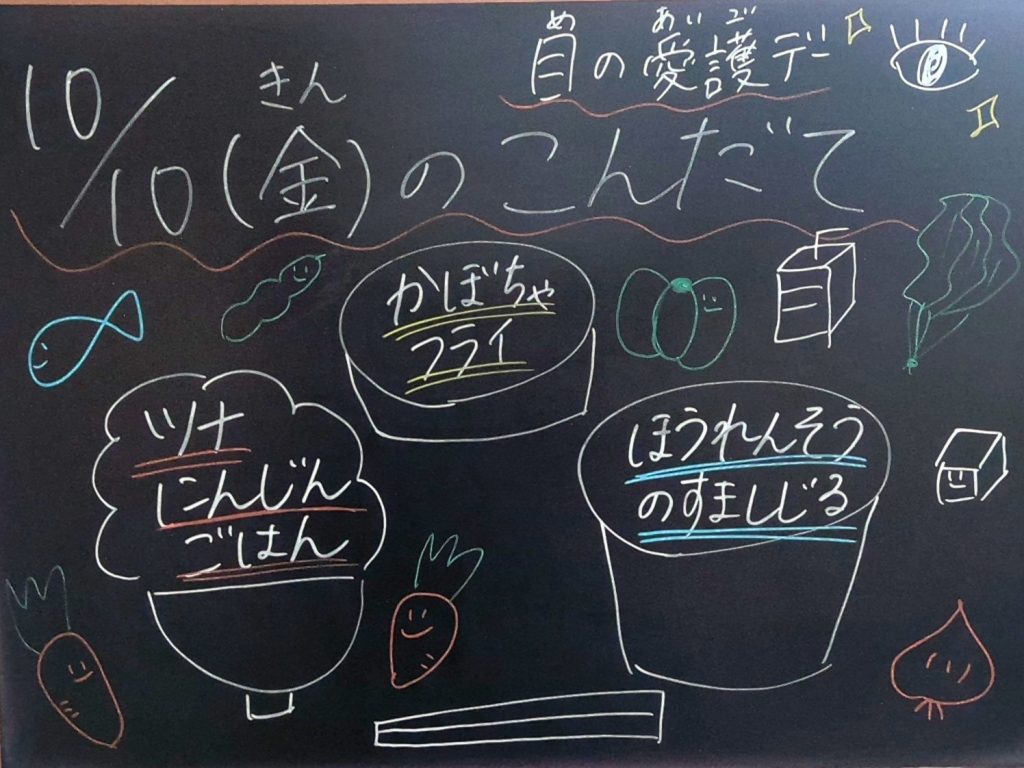 めあいご
目の愛護デー
きん
10/10(金)のこんだて
かぼちゃ
フライ
ツナ
にんじん
ごはん
ほうれんそう
のすましじる